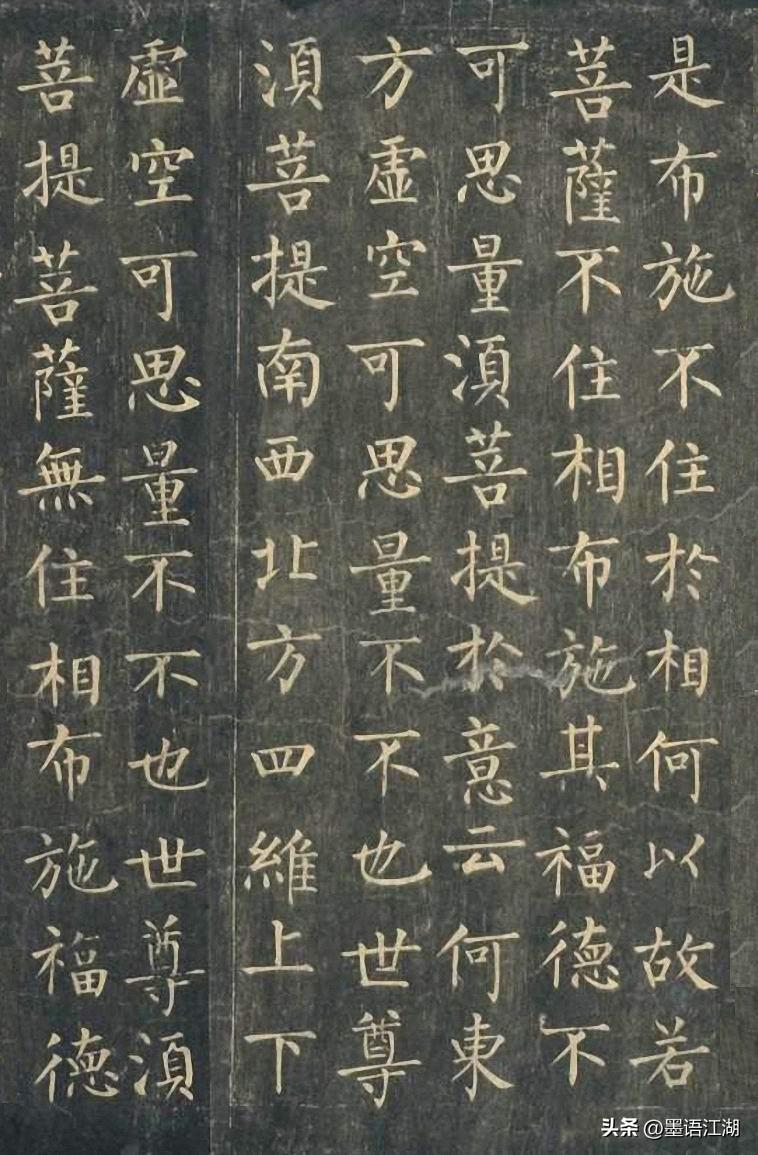 是布施不住於相何以故若
菩薩不住相布施其福德不
可思量湏菩提於意云何東
方虛空可思量不不也世尊
湏菩提南西北方四維上下
虛空可思量不不也世尊湏
菩提菩薩無住相布施福德
头条 @墨语江湖